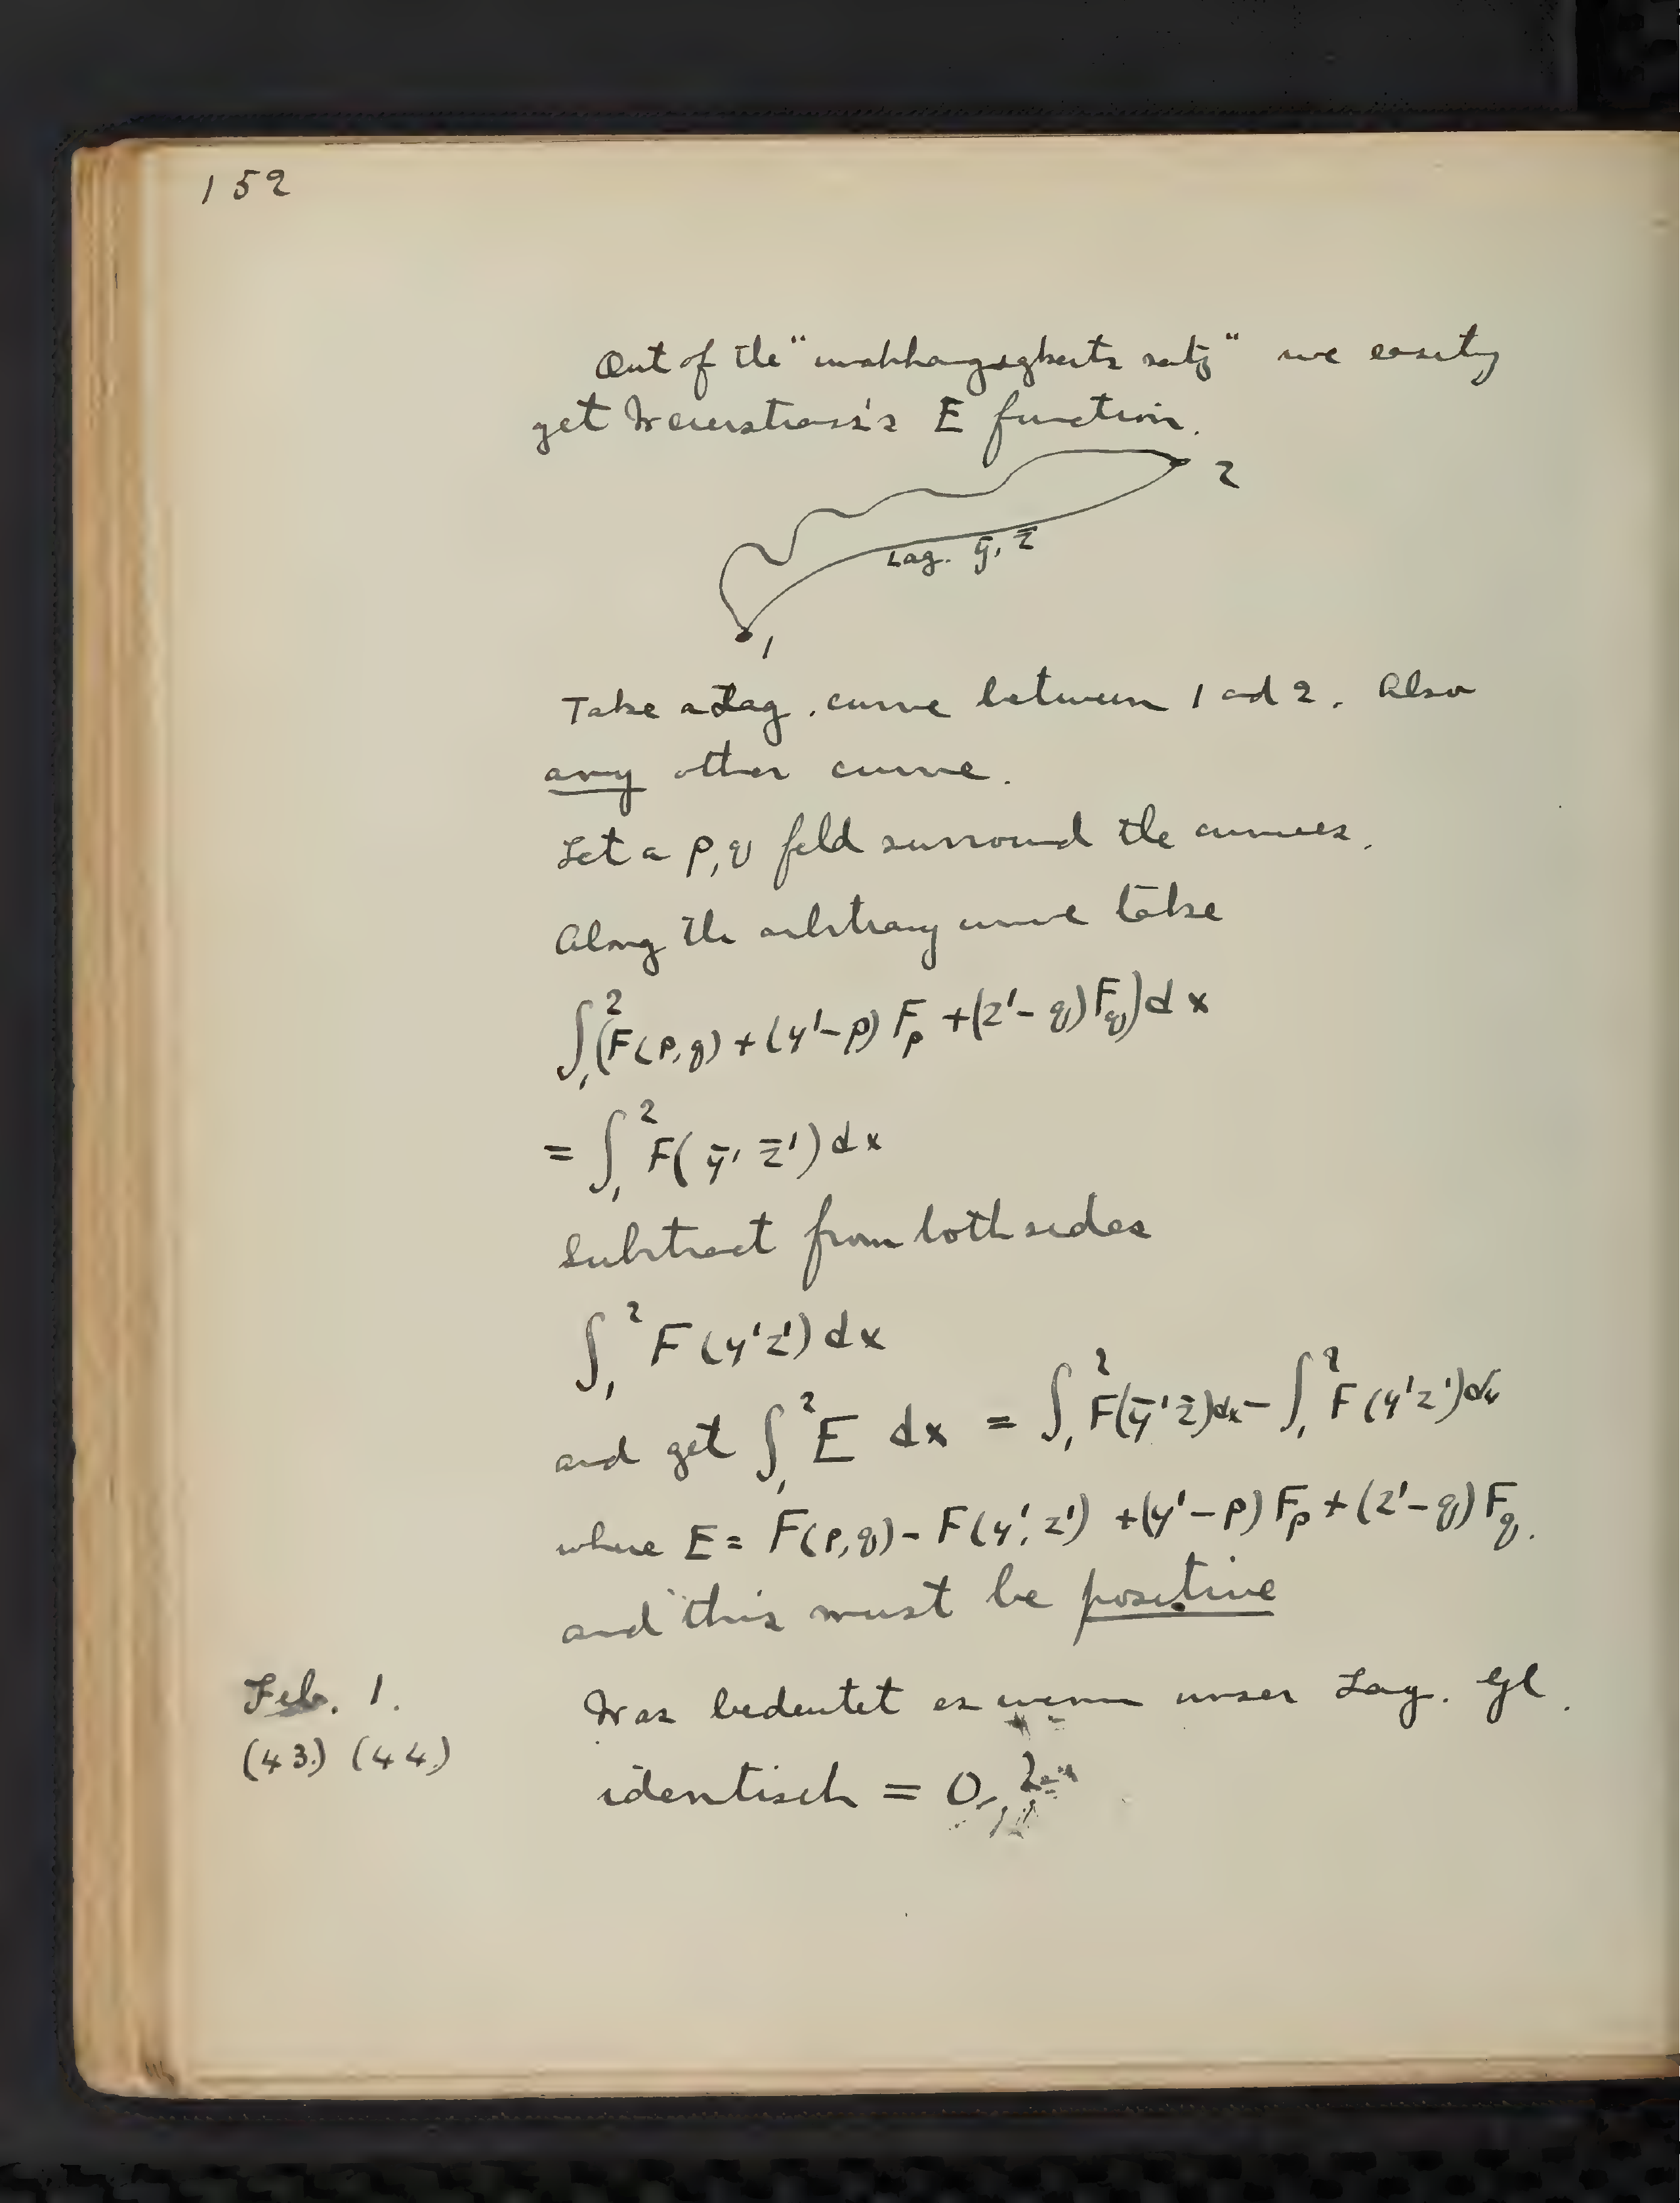 152
Out of the "unabhangigkeits satz" we easily
get Weierstrass's E function.
2
Lag. ȳ, z̄
1
Take a Lag. curve between 1 and 2. Also
any other curve.
Let a p, q feld surround the curves.
Along the arbitrary curve take
∫₁² (F(p,q) + (y'-p) F_p + (z'-q) F_q) dx
= ∫₁² F(ȳ' z̄') dx
Subtract from both sides
∫₁² F(y'z') dx
and get ∫₁² E dx = ∫₁² F(ȳ' z̄) dx - ∫₁² F(y'z') dx
where E = F(p,q) - F(y', z') + (y'-p) F_p + (z'-q) F_q.
and this must be positive
Feb. 1. Was bedeutet es wenn unser Lag. Gl.
(43.) (44.) identisch = 0,